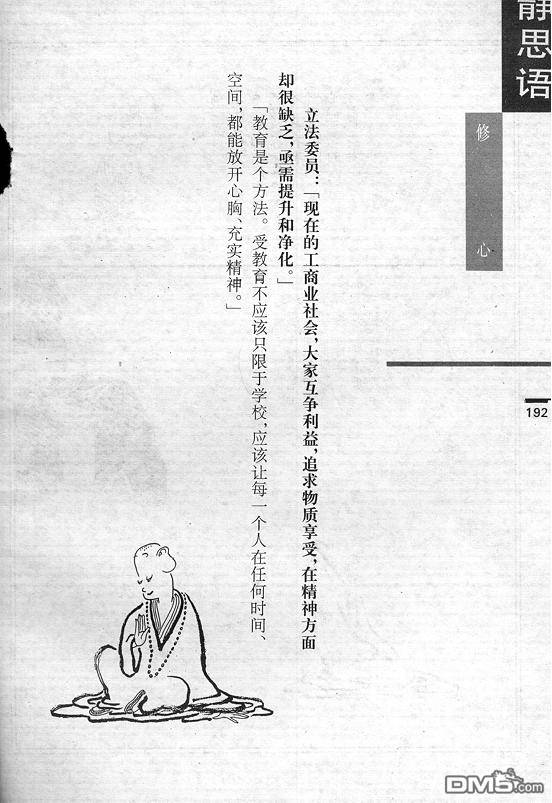 静思语
修心
192
立法委员:「现在的工商业社会,大家互争利益,追求物质享受,在精神方面
却很缺乏,亟需提升和净化。」
「教育是个方法。受教育不应该只限于学校,应该让每一个人在任何时间、
空间,都能放开心胸、充实精神。」
DM5.com